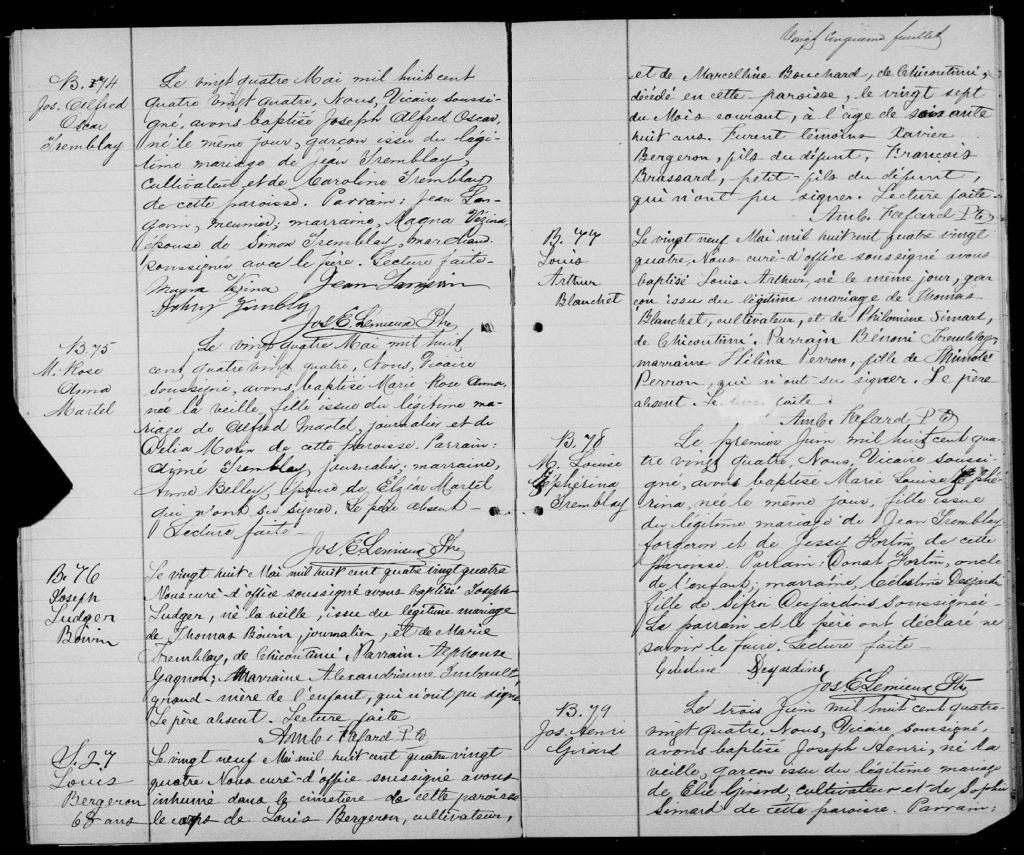 B. 74
Jos. Alfred
Oscar
Tremblay
Le vingt quatre Mai mil huit cent
quatre vingt quatre, Nous, Vicaire soussi-
gné, avons baptisé Joseph Alfred Oscar,
né le même jour, garçon issu du légi-
time mariage de Jean Tremblay,
cultivateur et de Caroline Tremblay
de cette paroisse. Parrain: Jean
meunier; marraine, Magna Vézina,
épouse de Simon Tremblay, marchand
soussignés avec le père. Lecture faite-
Magna Vezina Jean
Johny
Jos E. Lemieux Ptre
B. 75
M. Rose
Anna
Martel
Le vingt quatre Mai mil huit
cent, quatre vingt quatre, Nous, Vicaire
soussigné, avons baptisé Marie Rose Anna,
née la veille, fille issue du légitime ma-
riage de Alfred Martel, journalier et de
Delia Morin de cette paroisse. Parrain:
Aymé Tremblay, journalier; marraine,
Anne Belley, épouse de Elzéar Martel
qui n'ont su signer. Le père absent-
Lecture faite-
Jos E Lemieux Ptre
B. 76
Joseph
Ludger
Boivin
Le vingt huit Mai mil huit cent quatre vingt quatre
Nous curé d'office soussigné avons baptisé Joseph
Ludger, né la veille, issu du légitime mariage
de Thomas Boivin, journalier, et de Marie
Tremblay, de Chicoutimi. Parrain Alphonse
Gagnon; Marraine Alexandrienne Imbault,
grand-mère de l'enfant, qui n'ont pu signer
Le père absent. Lecture faite
Amb. Fafard P
S. 27
Louis
Bergeron
68 ans
Le vingt neuf Mai mil huit cent quatre vingt
quatre Nous curé d'office soussigné avons
inhumé dans le cimetière de cette paroisse
le corps de Louis Bergeron, cultivateur,
Vingt cinquième feuillet
et de Marcelline Bouchard, de Chicoutimi,
décédé en cette paroisse, le vingt sept
du Mois courant, à l'âge de soixante
huit ans. Furent témoins Xavier
Bergeron, fils du défunt, François
Brassard, petit-fils du défunt,
qui n'ont pu signer. Lecture faite-
Amb. Fafard P
B. 77
Louis
Arthur
Blanchet
Le vingt neuf Mai mil huit cent quatre vingt
quatre, Nous curé d'office soussigné avons
baptisé Louis Arthur, né le même jour, gar-
çon issu du légitime mariage de Thomas
Blanchet, cultivateur, et de Philomène Simard,
de Chicoutimi. Parrain Bénoni Tremblay,
marraine Hélène Perron, fille de
Perron, qui n'ont su signer. Le père
absent. Lecture faite.
Amb. Fafard P
B. 78
M. Louise
Zéphérina
Tremblay
Le premier Juin mil huit cent qua-
tre vingt quatre, Nous, Vicaire soussi-
gné, avons baptisé Marie Louise Zéphé-
rina, née le même jour, fille issue
du légitime mariage de Jean Tremblay
forgeron et de Jessy Fortin de cette
paroisse. Parrain: Donat Fortin, oncle
de l'enfant; marraine, Célestine Desjardins
fille de Desjardins soussignée-
Le parrain et le père ont déclaré ne
savoir le faire. Lecture faite-
Celestine Desjardins
Jos E Lemieux Ptre
B. 79
Jos. Henri
Girard
Le trois Juin mil huit cent quatre-
vingt quatre, Nous, Vicaire soussigné,
avons baptisé Joseph Henri, né la
veille, garçon issu du légitime mariage
de Elie Girard, cultivateur et de Sophie
Simard de cette paroisse. Parrain: